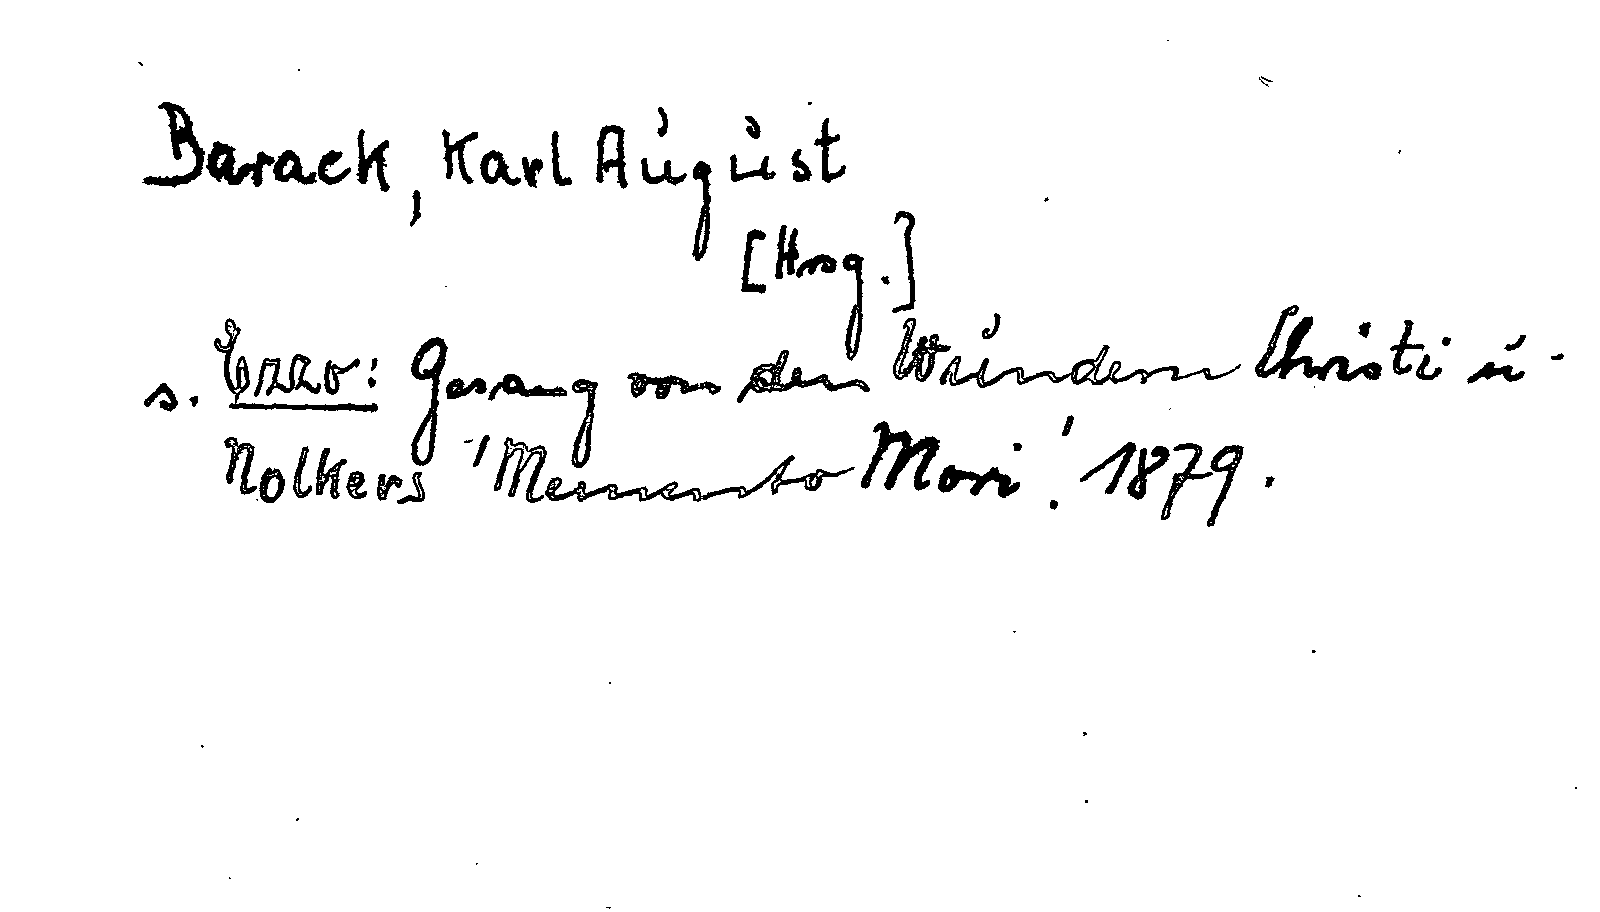 Barack, Karl August
[Hrsg.]
s. Ezzo: Gesang von den Wundern Christi u.
Notkers 'Memento Mori'. 1879.